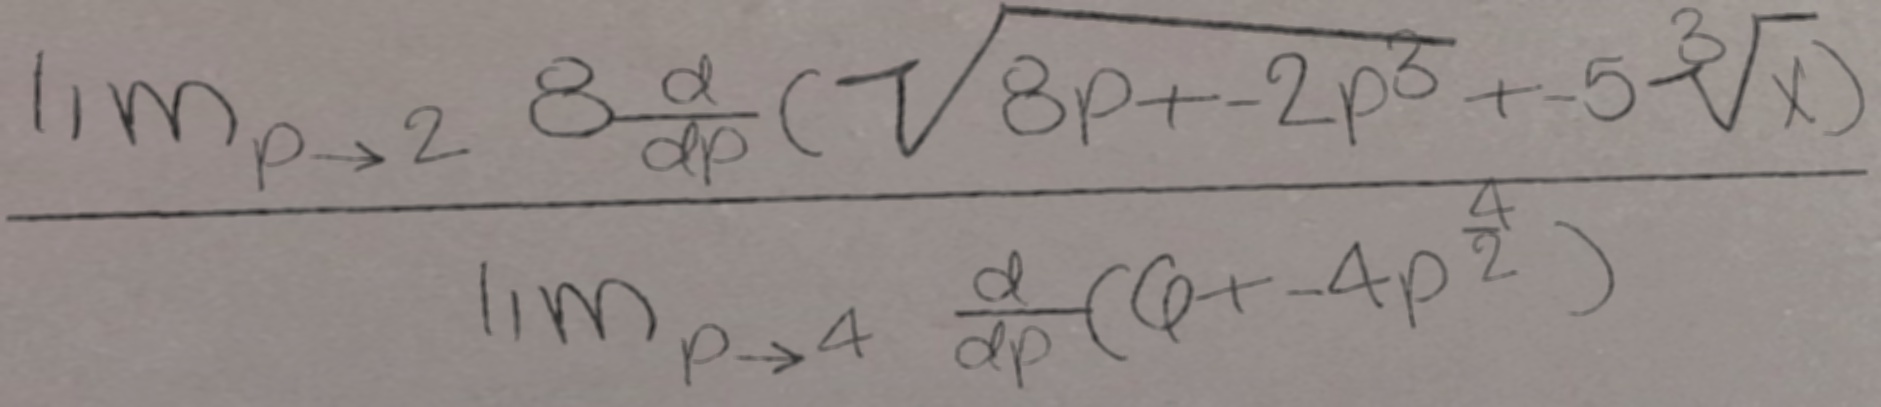 \frac{\lim_{p \to 2} 8 \frac{d}{dp} (\sqrt{8p + -2p^3} + -5 \sqrt[3]{x})}{\lim_{p \to 4} \frac{d}{dp} (6 + -4p^{\frac{4}{2}})}